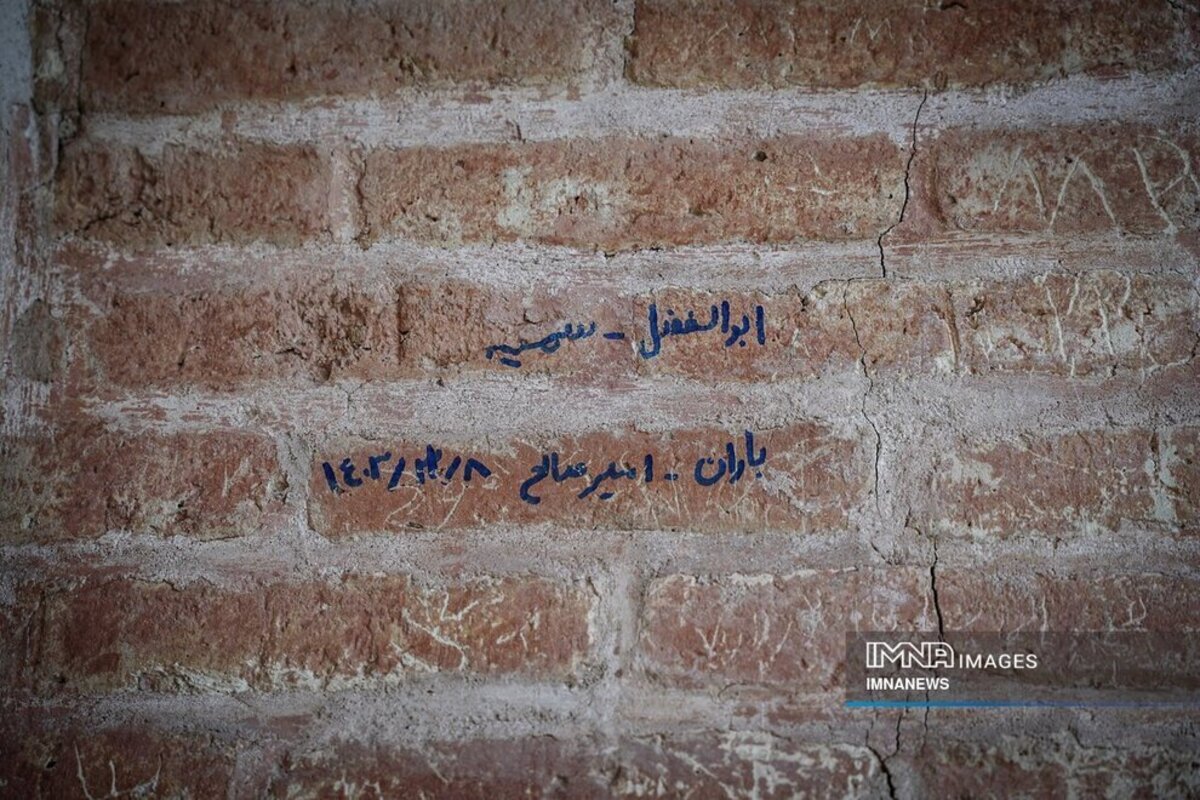 ابوالفضل - سمیه
باران - امیرصالح ۱٤۰۳/۱۲/۸
IMNA IMAGES
IMNANEWS